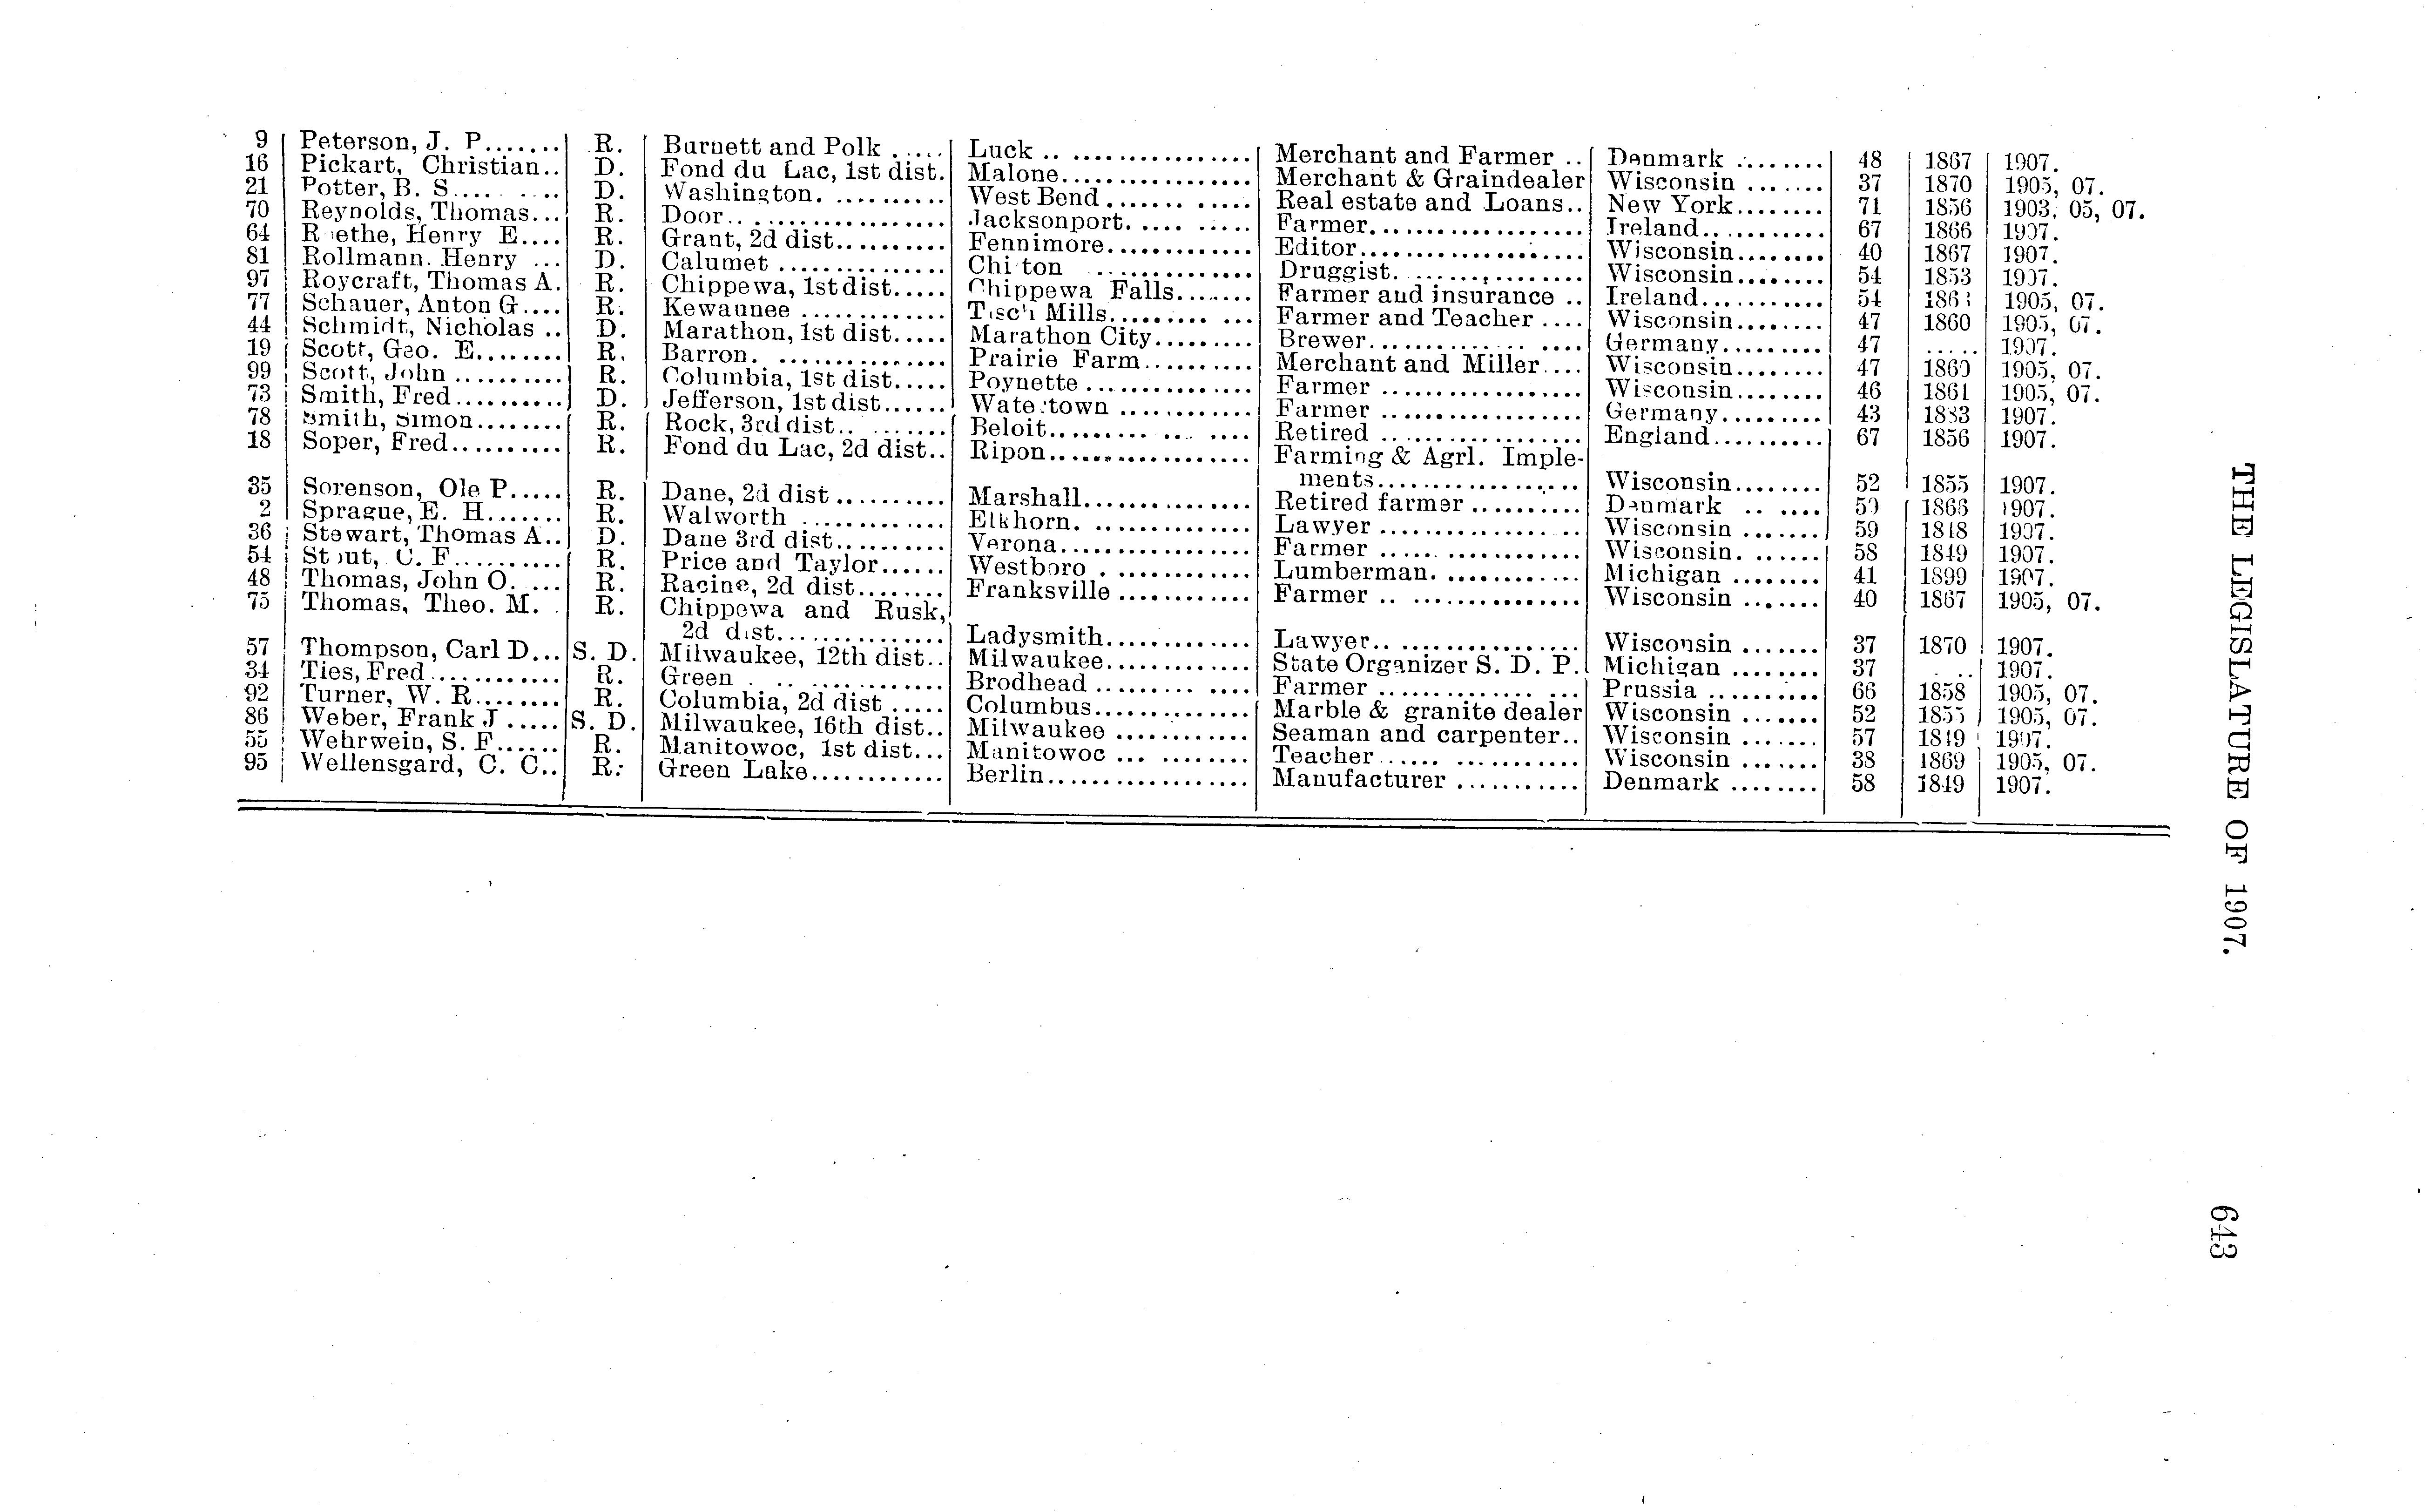 9 Peterson, J. P....... R. Burnett and Polk ..... Luck .. ................ Merchant and Farmer .. Denmark ........ 48 1867 1907.
16 Pickart, Christian.. D. Fond du Lac, 1st dist. Malone................. Merchant & Graindealer Wisconsin ....... 37 1870 1905, 07.
21 Potter, B. S.... .... D. Washington. .......... West Bend....... ..... Real estate and Loans.. New York........ 71 1856 1903, 05, 07.
70 Reynolds, Thomas... R. Door.. ................. Jacksonport. .... ..... Farmer................... Ireland........... 67 1866 1907.
64 Roethe, Henry E.... R. Grant, 2d dist.......... Fennimore............. Editor.................... Wisconsin........ 40 1867 1907.
81 Rollmann. Henry ... D. Calumet ............... Chilton .............. Druggist. ................ Wisconsin........ 54 1853 1907.
97 Roycraft, Thomas A. R. Chippewa, 1st dist..... Chippewa Falls....... Farmer and insurance .. Ireland........... 54 1905, 07.
77 Schauer, Anton G.... R. Kewaunee ............. Tisch Mills......... ... Farmer and Teacher .... Wisconsin........ 47 1860 1905, 07.
44 Schmidt, Nicholas .. D. Marathon, 1st dist..... Marathon City......... Brewer.............. .... Germany......... 47 ..... 1907.
19 Scott, Geo. E........ R. Barron. ............... Prairie Farm.......... Merchant and Miller.... Wisconsin........ 47 1860 1905, 07.
99 Scott, John .......... R. Columbia, 1st dist..... Poynette ............... Farmer .................. Wisconsin........ 46 1861 1905, 07.
73 Smith, Fred.......... D. Jefferson, 1st dist...... Watertown ............ Farmer .................. Germany......... 43 1883 1907.
78 Smith, Simon........ R. Rock, 3rd dist.. ....... Beloit.......... ... .... Retired .................. England.......... 67 1856 1907.
18 Soper, Fred.......... R. Fond du Lac, 2d dist.. Ripon.................. Farming & Agrl. Imple-
ments.................. Wisconsin........ 52 1855 1907.
35 Sorenson, Ole P..... R. Dane, 2d dist .......... Marshall............... Retired farmer .......... Denmark .. .... 59 1866 1907.
2 Sprague, E. H....... R. Walworth ............. Elkhorn. .............. Lawyer ............... .. Wisconsin ....... 59 1848 1907.
36 Stewart, Thomas A.. D. Dane 3rd dist.......... Verona................. Farmer ...... ............ Wisconsin. ...... 58 1849 1907.
54 Stout, C. F.......... R. Price and Taylor...... Westboro . ............ Lumberman. ............ Michigan ........ 41 1899 1907.
48 Thomas, John O. .... R. Racine, 2d dist........ Franksville ............ Farmer .. ............... Wisconsin ....... 40 1867 1905, 07.
75 Thomas, Theo. M. . R. Chippewa and Rusk,
2d dist............... Ladysmith............. Lawyer.. ................ Wisconsin ....... 37 1870 1907.
57 Thompson, Carl D... S. D. Milwaukee, 12th dist.. Milwaukee............. State Organizer S. D. P. Michigan ........ 37 . .. 1907.
34 Ties, Fred............ R. Green . .. .............. Brodhead ......... .... Farmer .............. ... Prussia .......... 66 1858 1905, 07.
92 Turner, W. R........ R. Columbia, 2d dist ..... Columbus.............. Marble & granite dealer Wisconsin ....... 52 1855 1905, 07.
86 Weber, Frank J ..... S. D. Milwaukee, 16th dist.. Milwaukee ............ Seaman and carpenter.. Wisconsin ....... 57 1849 1907.
55 Wehrwein, S. F...... R. Manitowoc, 1st dist... Manitowoc ... ........ Teacher...... ........... Wisconsin ....... 38 1869 1905, 07.
95 Wellensgard, C. C.. R. Green Lake............ Berlin.................. Manufacturer ........... Denmark ........ 58 1849 1907.
THE LEGISLATURE OF 1907.
643